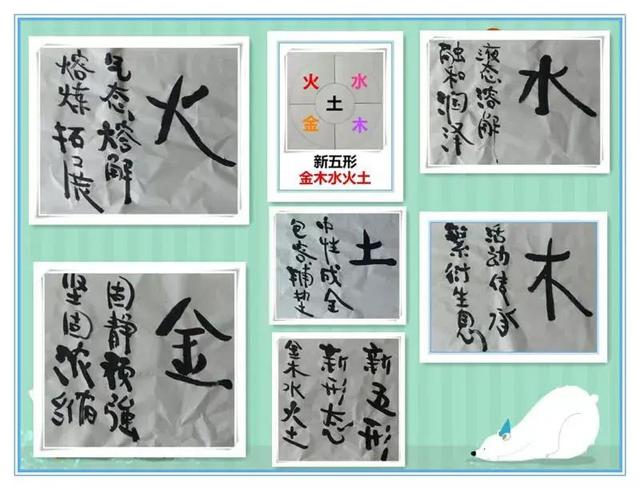 火
气态熔解
熔炼拓展
火 水
土
金 木
新五形
金木水火土
水
液态溶解
融和润泽
土
中性成全
包容辅
木
活动传承
繁衍生息
金
固静顽强
坚固浓缩
新五形
新形态
金木水火土